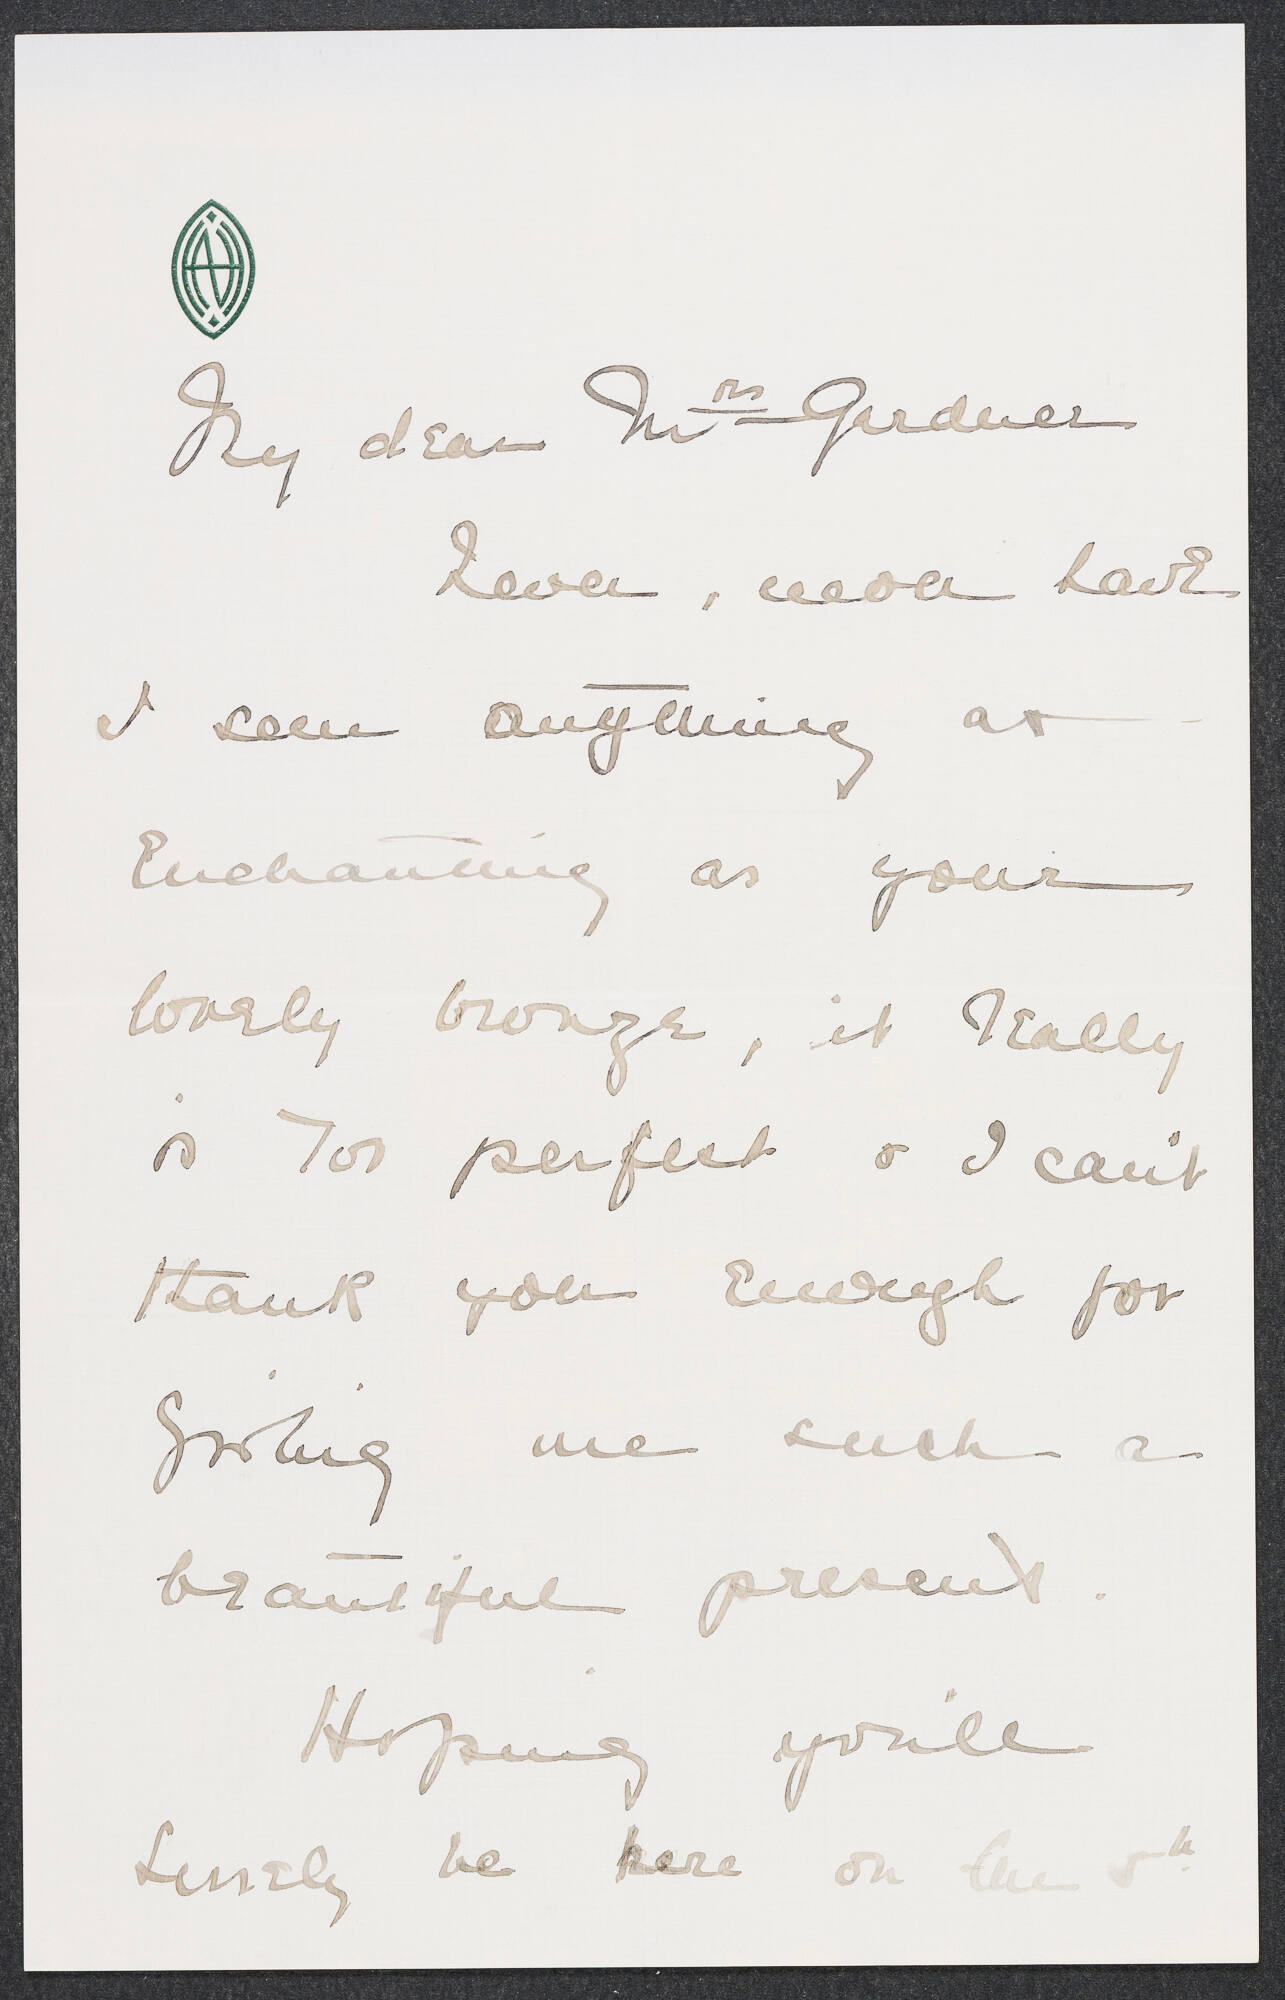 My dear Mrs Gardner
Never, never have
I seen anything as
Enchanting as your
lovely bronze, it really
is too perfect & I can't
thank you Enough for
Giving me such a
beautiful present.
Hoping you'll
surely be here on the 5th